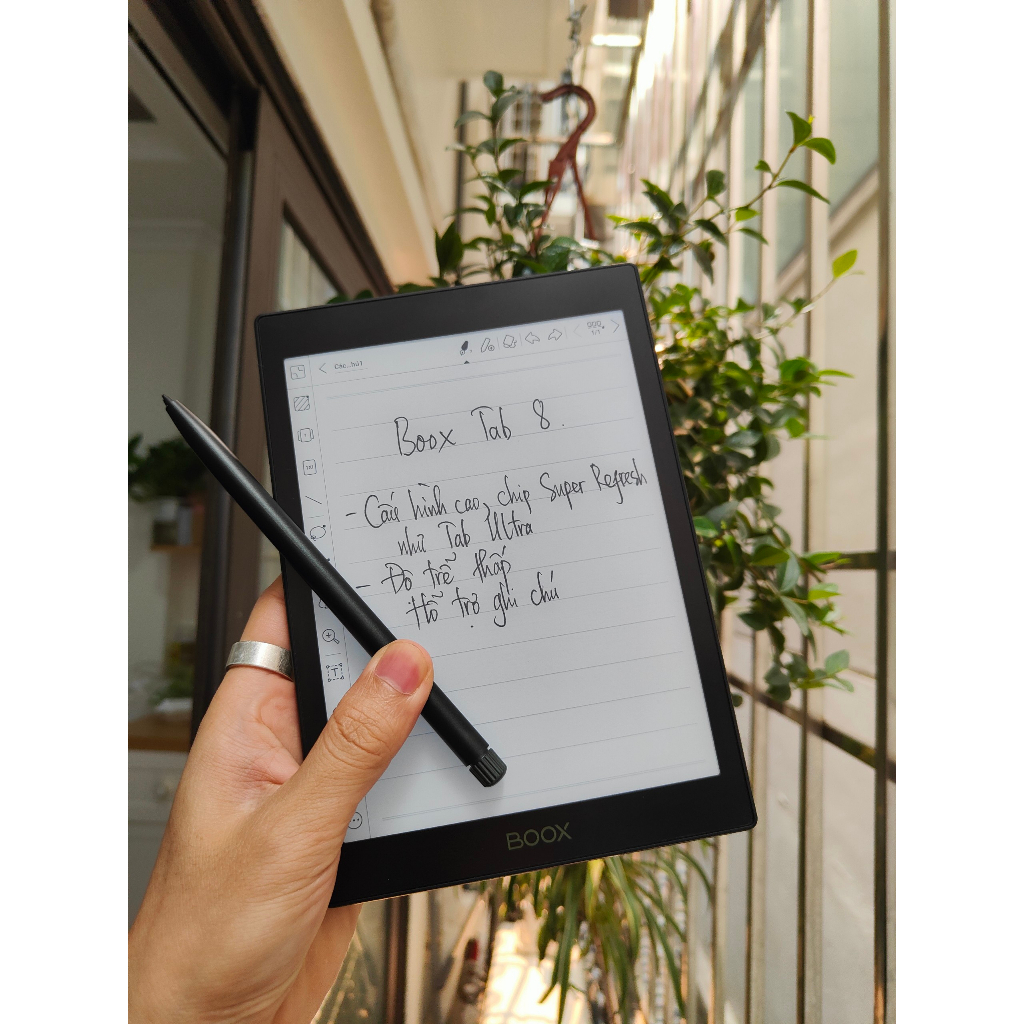 Boox Tab 8.
- Cấu hình cao, chip Super Refresh
như Tab Ultra
- Độ trễ thấp
Hỗ trợ ghi chú
BOOX